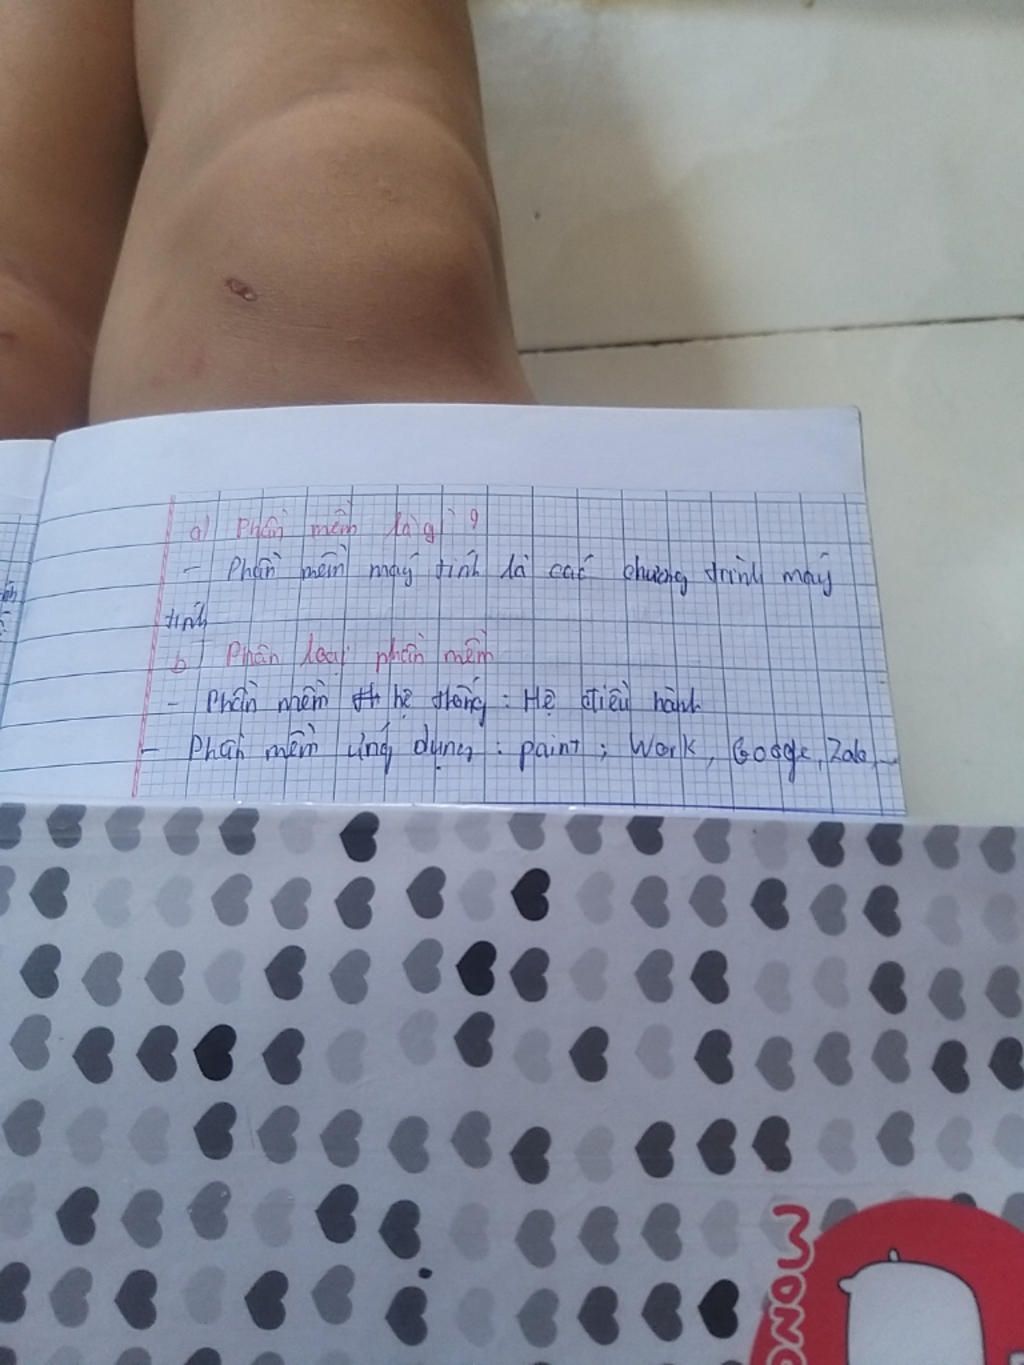 a) Phần mềm là gì ?
- Phần mềm máy tính là các chương trình máy
tính
b) Phân loại phần mềm
- Phần mềm hệ thống : Hệ điều hành
- Phần mềm ứng dụng : paint ; Work, Google, Zalo,...
MONG